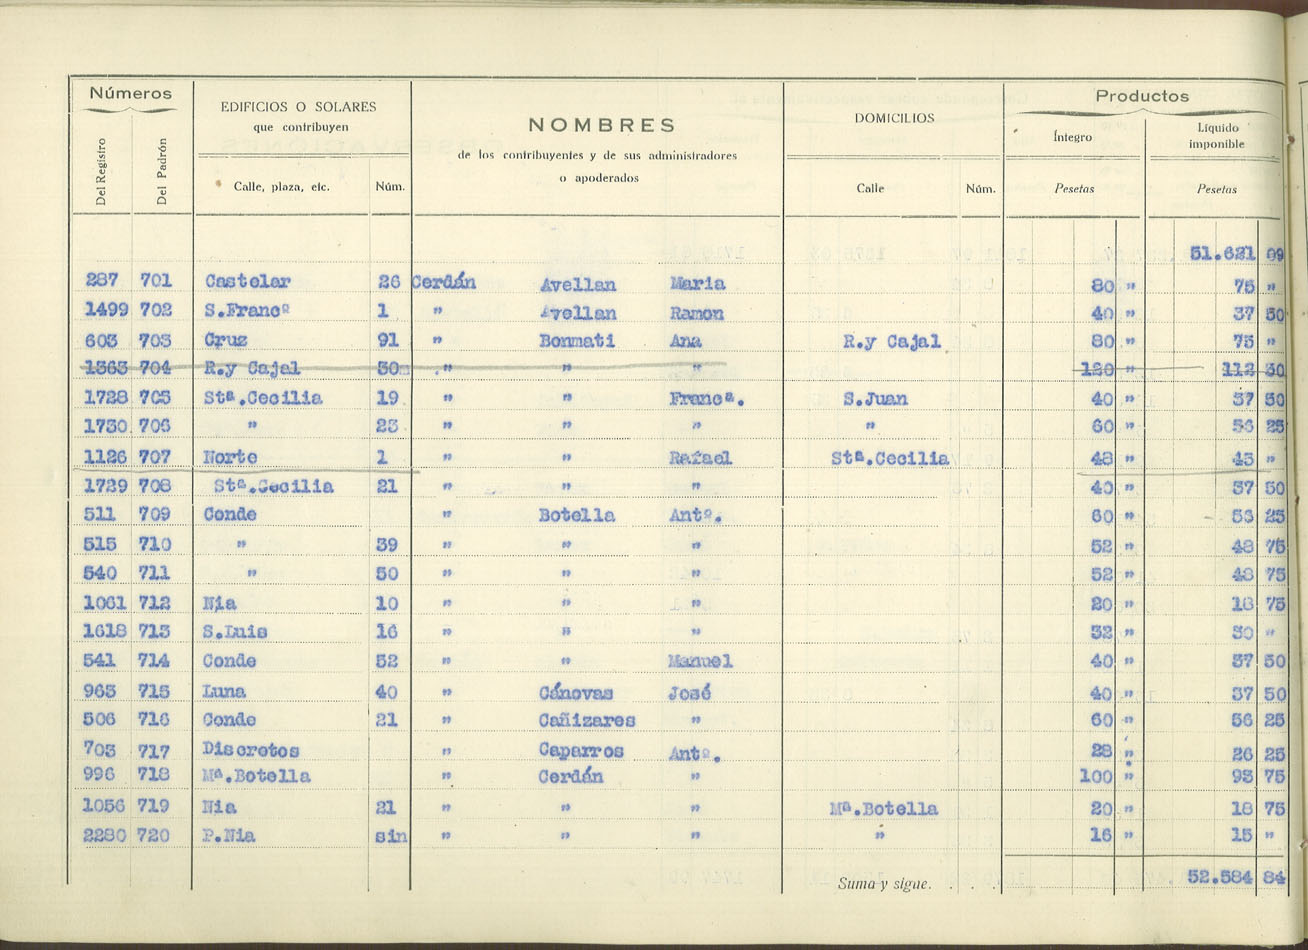 Números EDIFICIOS O SOLARES que contribuyen NOMBRES de los contribuyentes y de sus administradores o apoderados DOMICILIOS Productos
Del Registro Del Padrón Calle, plaza, etc. Núm. Calle Núm. Íntegro Pesetas Líquido imponible Pesetas
51.621 09
287 701 Castelar 26 Cerdán Avellan Maria 80 " 75 "
1499 702 S.Francº 1 " Avellan Ramon 40 " 37 50
603 703 Cruz 91 " Bonmati Ana R.y Cajal 80 " 75 "
1363 704 R.y Cajal 30 " " " 120 " 112 50
1728 705 Stª.Cecilia 19 " " Francª. S.Juan 40 " 37 50
1730 706 " 23 " " " " 60 " 56 25
1126 707 Norte 1 " " Rafael Stª.Cecilia 48 " 45 "
1729 708 Stª.Cecilia 21 " " " 40 " 37 50
511 709 Conde " Botella Antº. 60 " 56 25
515 710 " 39 " " " 52 " 48 75
540 711 " 50 " " " 52 " 48 75
1061 712 Nia 10 " " " 20 " 18 75
1618 713 S.Luis 16 " " " 32 " 30 "
541 714 Conde 52 " " Manuel 40 " 37 50
963 715 Luna 40 " Cánovas José 40 " 37 50
506 716 Conde 21 " Cañizares " 60 " 56 25
703 717 Discretos " Caparros Antº. 28 " 26 25
996 718 Mª.Botella " Cerdán " 100 " 93 75
1056 719 Nia 21 " " " Mª.Botella 20 " 18 75
2280 720 P.Nia sin " " " " 16 " 15 "
Suma y sigue. . . . 52.584 84